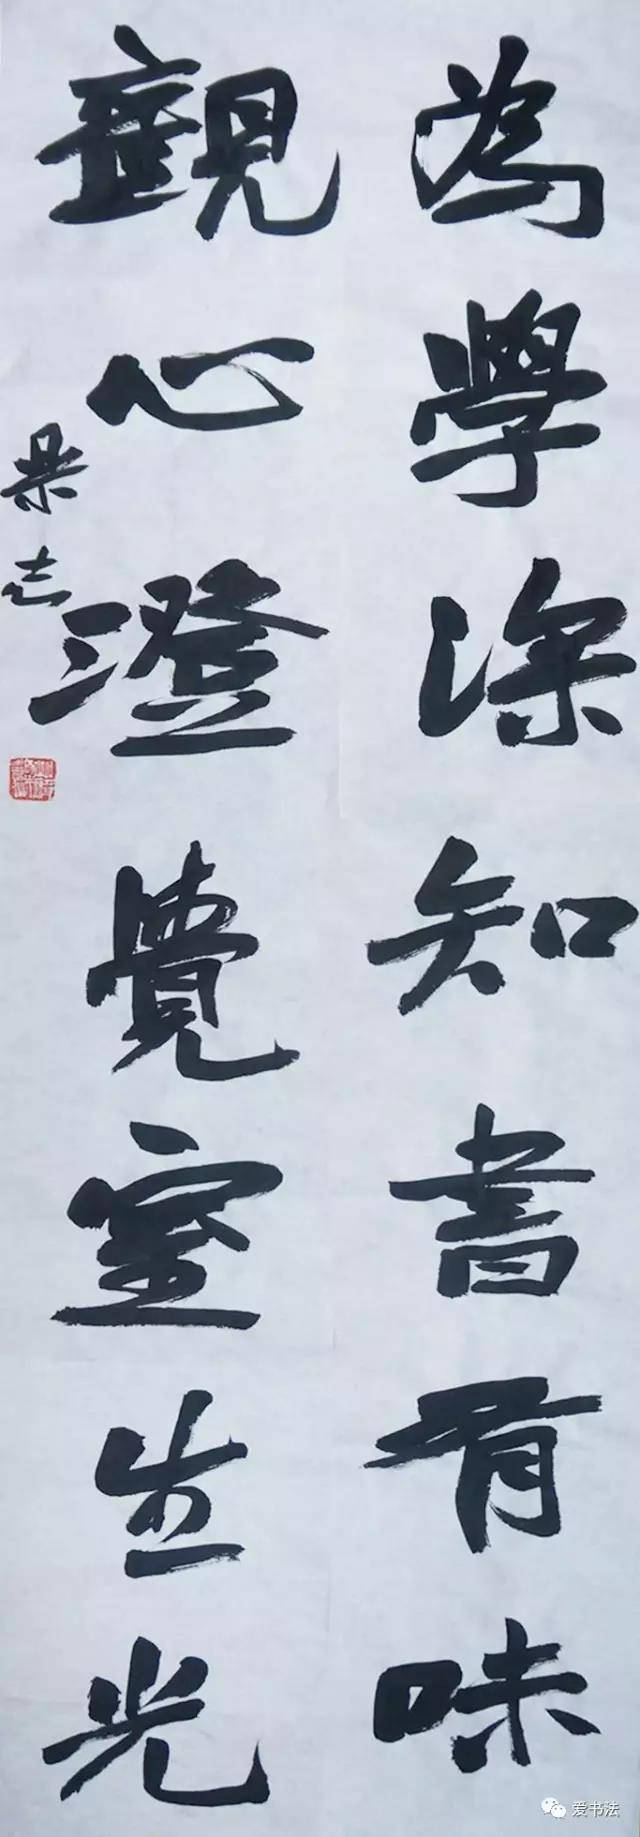 為學深知書有味
觀心澄覺室生光
杲志
爱书法